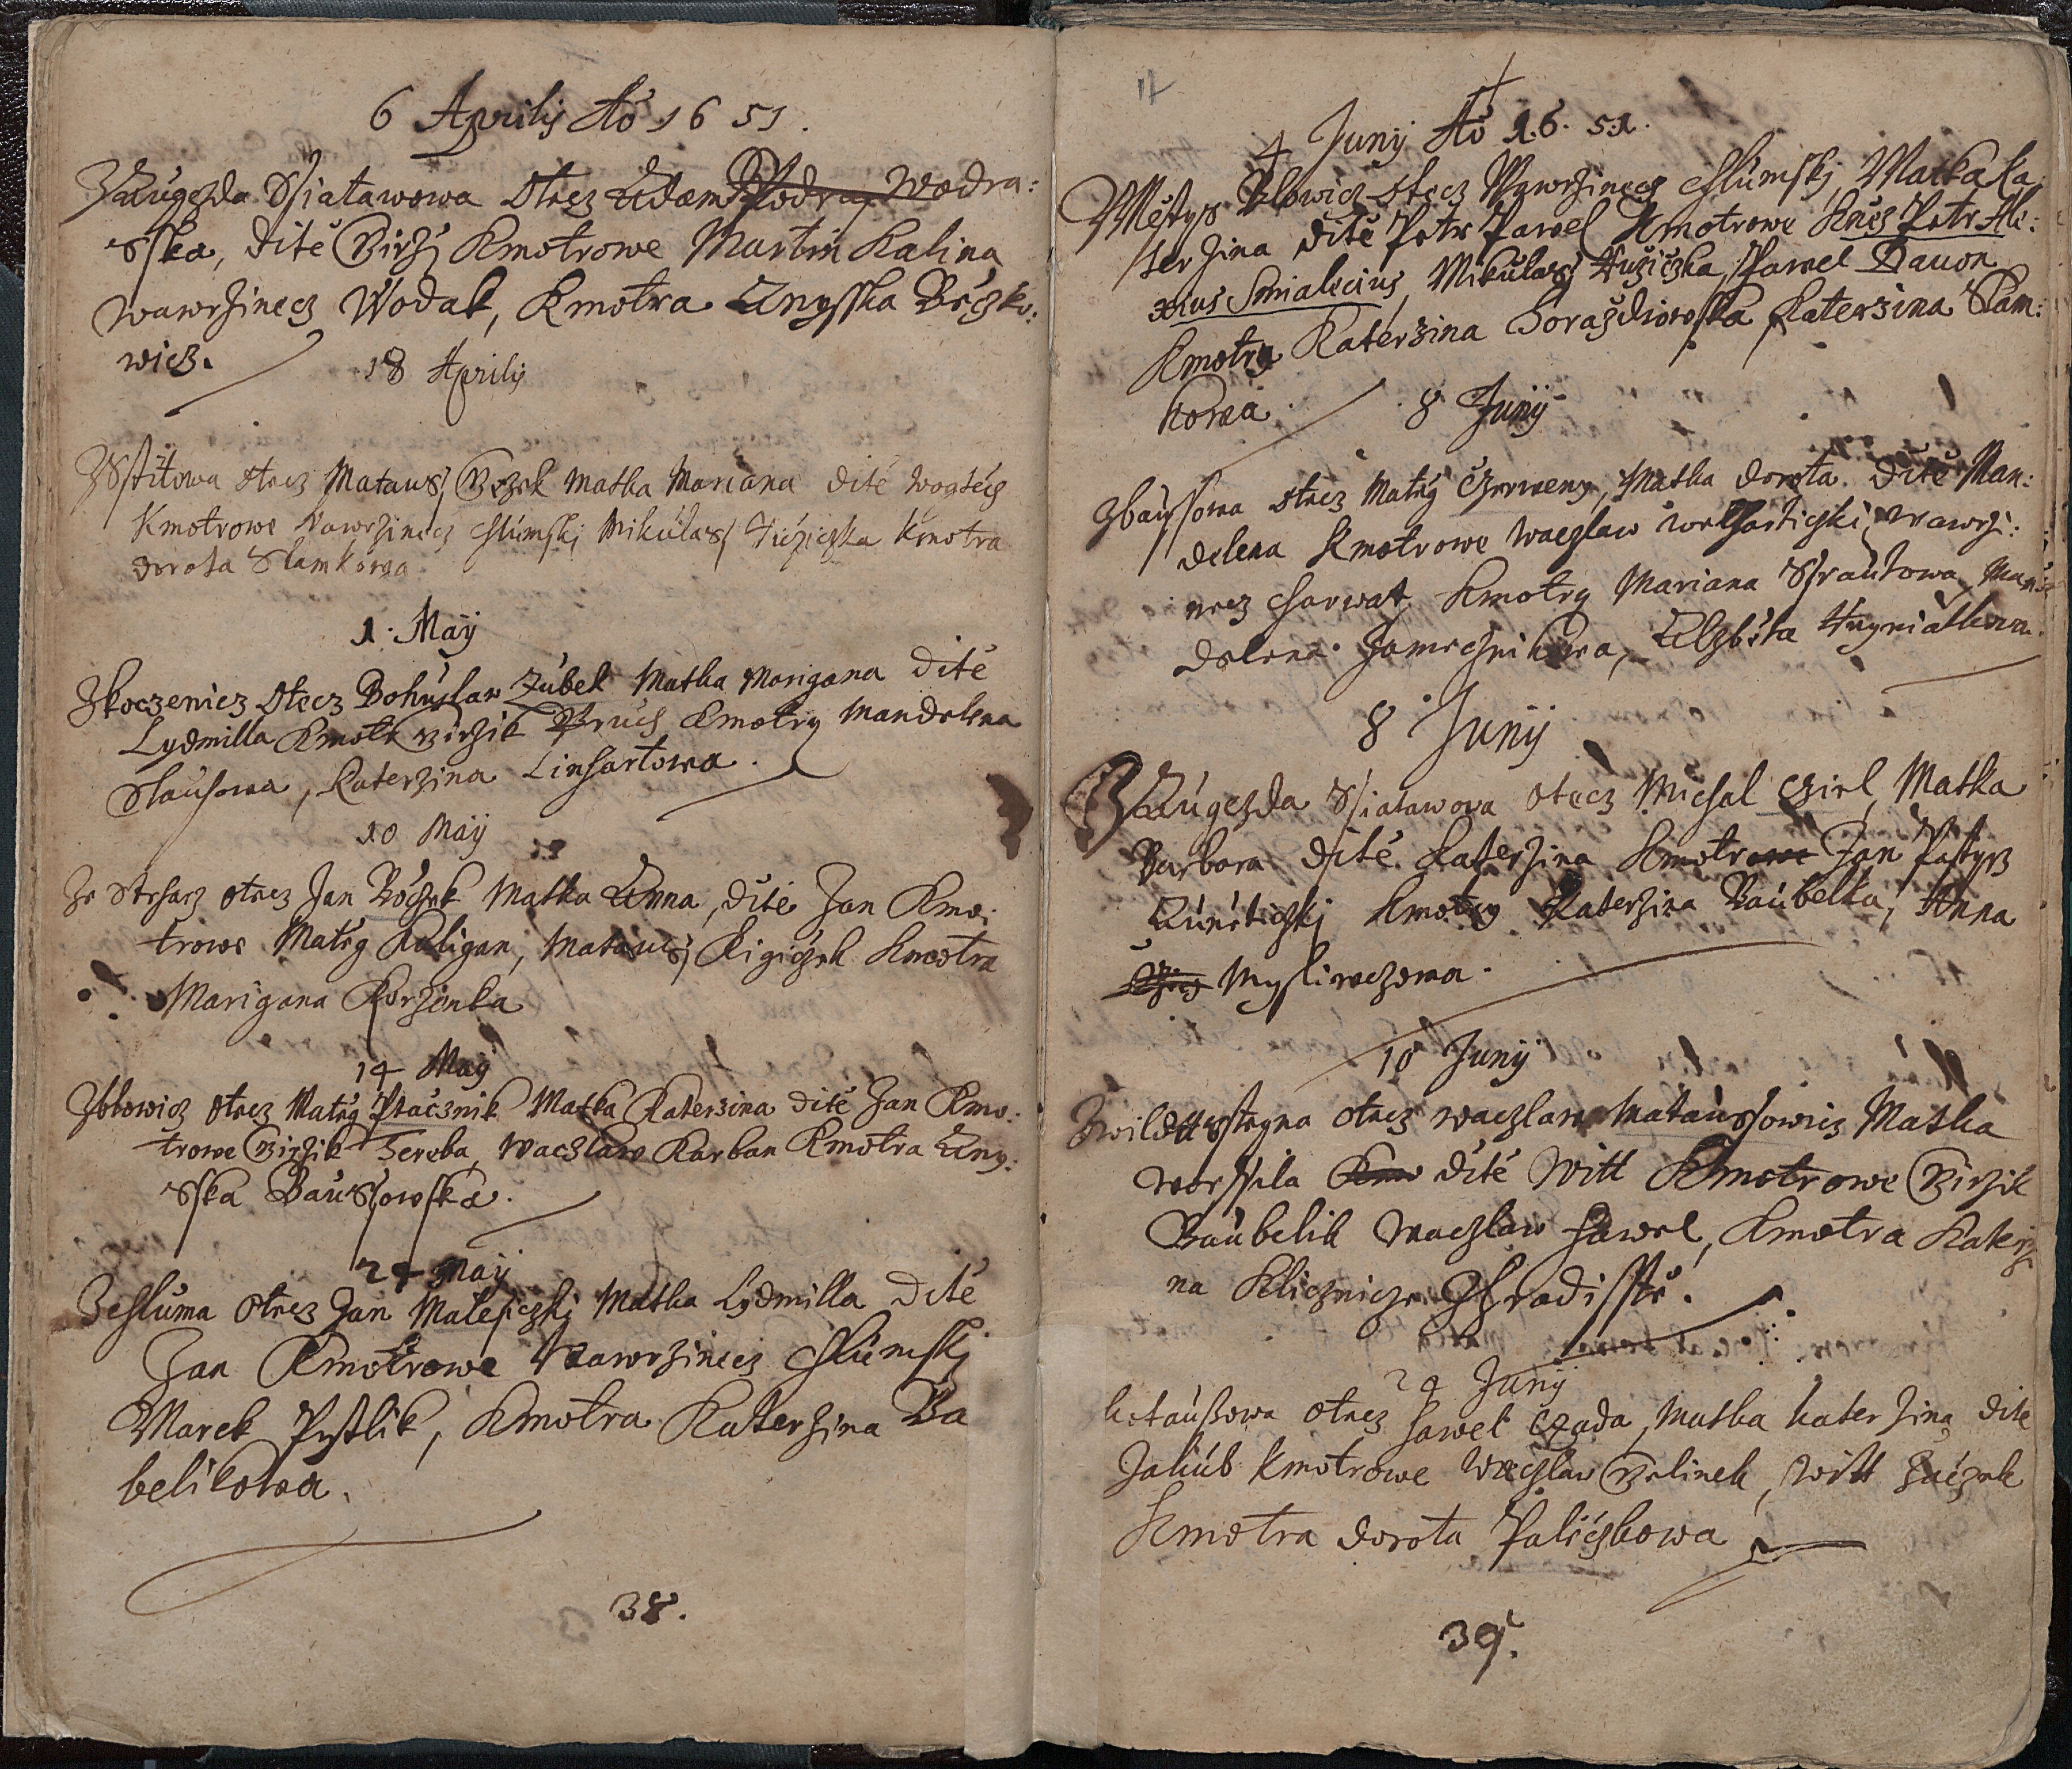 6 Aprilis Aō 1651.
Z Augezda Ssiatawowa Otecz Adam Wodra:
sska, Dite Girzj Kmotrowe Martin Kalina
Wawrzinecz Wodak, Kmotra Anysska Beczko:
wicz.
18 Aprilis
Z Sstitowa otecz Matauss Gezek Matka Mariana dite Wogtech
Kmotrowe Wawrzinecz Chlumskj Mikulass Kmotra
Dorota Slamkowa
1. Maij
Zkoczenicz Otecz Bohuslaw Zubek Matka Marigana Dite
Lydmilla Kmotr Girzik Bruch Kmotry Mandelena
Slausowa, Katerzina Linhartowa.
10 Maij
Ze Strharz otecz Jan Boczek Matka Anna, dite Jan Kmo:
trowe Matèg Kuligan, Matauss Kigiczek Kmotra
Marigana Korzinka
14 Maij
Zblowicz otecz Matèg Ptacznik Matka Katerzina dite Jan Kmo:
trowe Girzik Sereba, Waczlaw Karban Kmotra Any:
sska Baussowska.
24 Maij
Zchluma otecz Jan Maleficzkj Matka Lydmilla Dite
Jan Kmotrowe Wawrzinecz Chlumskj
Marek Pystlik, Kmotra Katerzina Ba
belikowa.
38.
17
4 Junij Aō 1.6.51.
Mèstys Blowicz otecz Wawrzinecz Chlumskj, Matka Ka
terzina Ditè Petr Pawel Kmotrowe Knez Petr Ale:
xius Smialecius, Mikulass Huziczka, Pawel Dauon
Kmotry Katerzina Horazdiowska, Katerzina Slam:
kowa.
8 Junij
Zbaussowa otecz Matèg Czerweny, Matka Dorota. Ditè Man:
delena Kmotrowe Waczlaw Wrhorticzki, Wawrzi:
necz Charwat, Kmotry Mariana Sstautowa, Man
delena Hamrcznikowa, Alzbieta Hayniatkowa.
8 Junij
Z Augezda Ssiatawowa otecz Michal Cziel, Matka
Barbora dite Katerzina Kmotrowe Jan Pastyrz
Zuneticzkj Kmotry Katerzina Baubelka, Anna
Mysliweczowa.
10 Junij
Zwildsstegna otecz Waczlaw Mataussowicz Matka
Worssila Kmo dite Witt Kmotrowe Girzik
Baubelik Waczlaw Hawel, Kmotra Katerzi
na Klicznicze Ghradisstie.
24 Junij
Kotaussowa otecz Hawel Czada, Matka Katerzina dite
Jakub Kmotrowe Waczlaw Gelinek, Witt Haczek
Kmotra Dorota Paliczkowa
39.